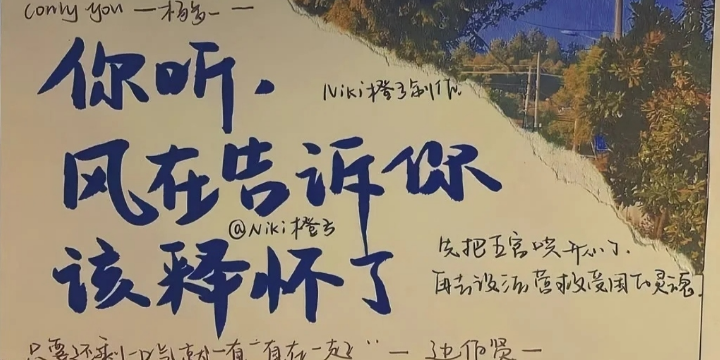 (only you 一杨多一 一
你听.
Niki橙子制作
风在告诉你
@Niki橙子
该释怀了
先把五官哄开心了.
再去设法营救受困的灵魂.
只要还剩一口气就一有“有在一起” 一 边伯贤一